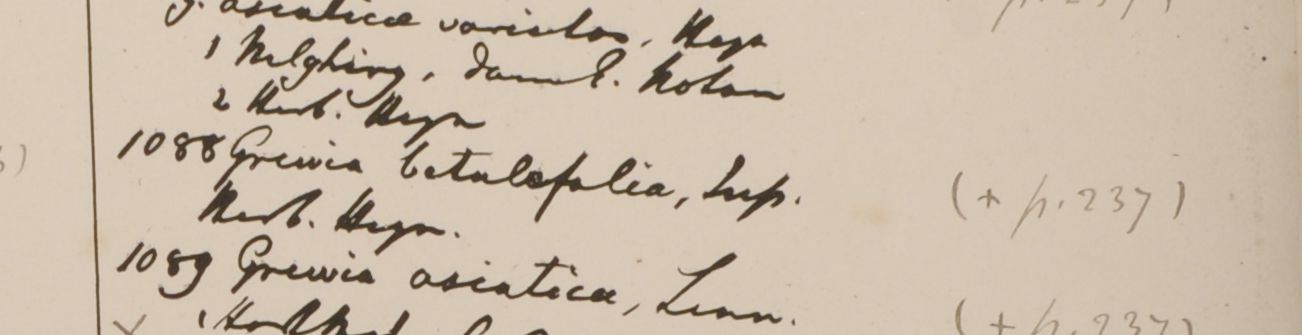 G. asiaticæ varietas, Heyn
1 Nilghiry, Noton
2 Herb. Heyn
1088 Grewia betulæfolia, Jus. (+ p. 237)
Herb. Heyn.
1089 Grewia asiatica, Linn.
(+ p. 237)